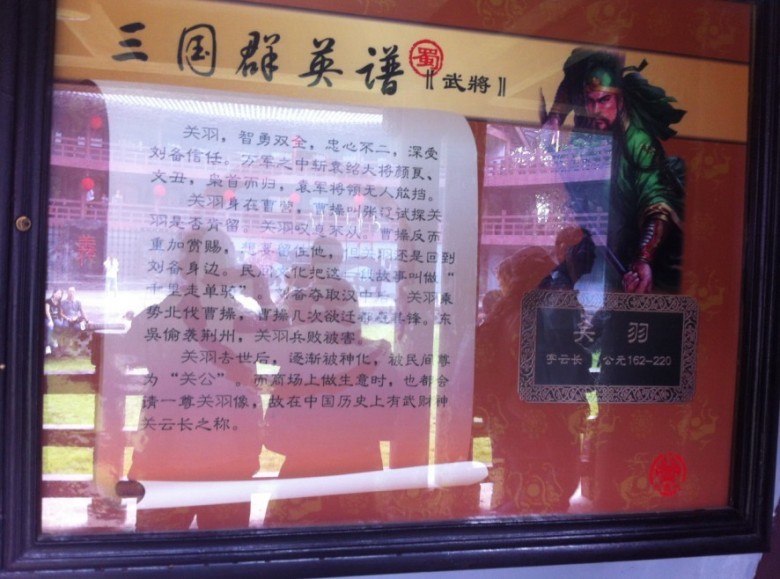 三国群英谱
蜀
武將
关羽，智勇双全，忠心不二，深受
刘备信任。万军之中斩袁绍大将颜良、
文丑，枭首而归，袁军将领无人能挡。
关羽身在曹营，曹操叫张辽试探关
羽是否肯留，关羽叹息不从，曹操反而
重加赏赐，想要留住他，但关羽还是回到
刘备身边。民间文化把这一段故事叫做“
千里走单骑”。刘备夺取汉中后，关羽乘
势北伐曹操，曹操几次欲迁都避其锋。东
吴偷袭荆州，关羽兵败被害。
关羽去世后，逐渐被神化，被民间尊
为“关公”。而商场上做生意时，也都会
请一尊关羽像，故在中国历史上有武财神
关云长之称。
关 羽
字云长 公元162-220